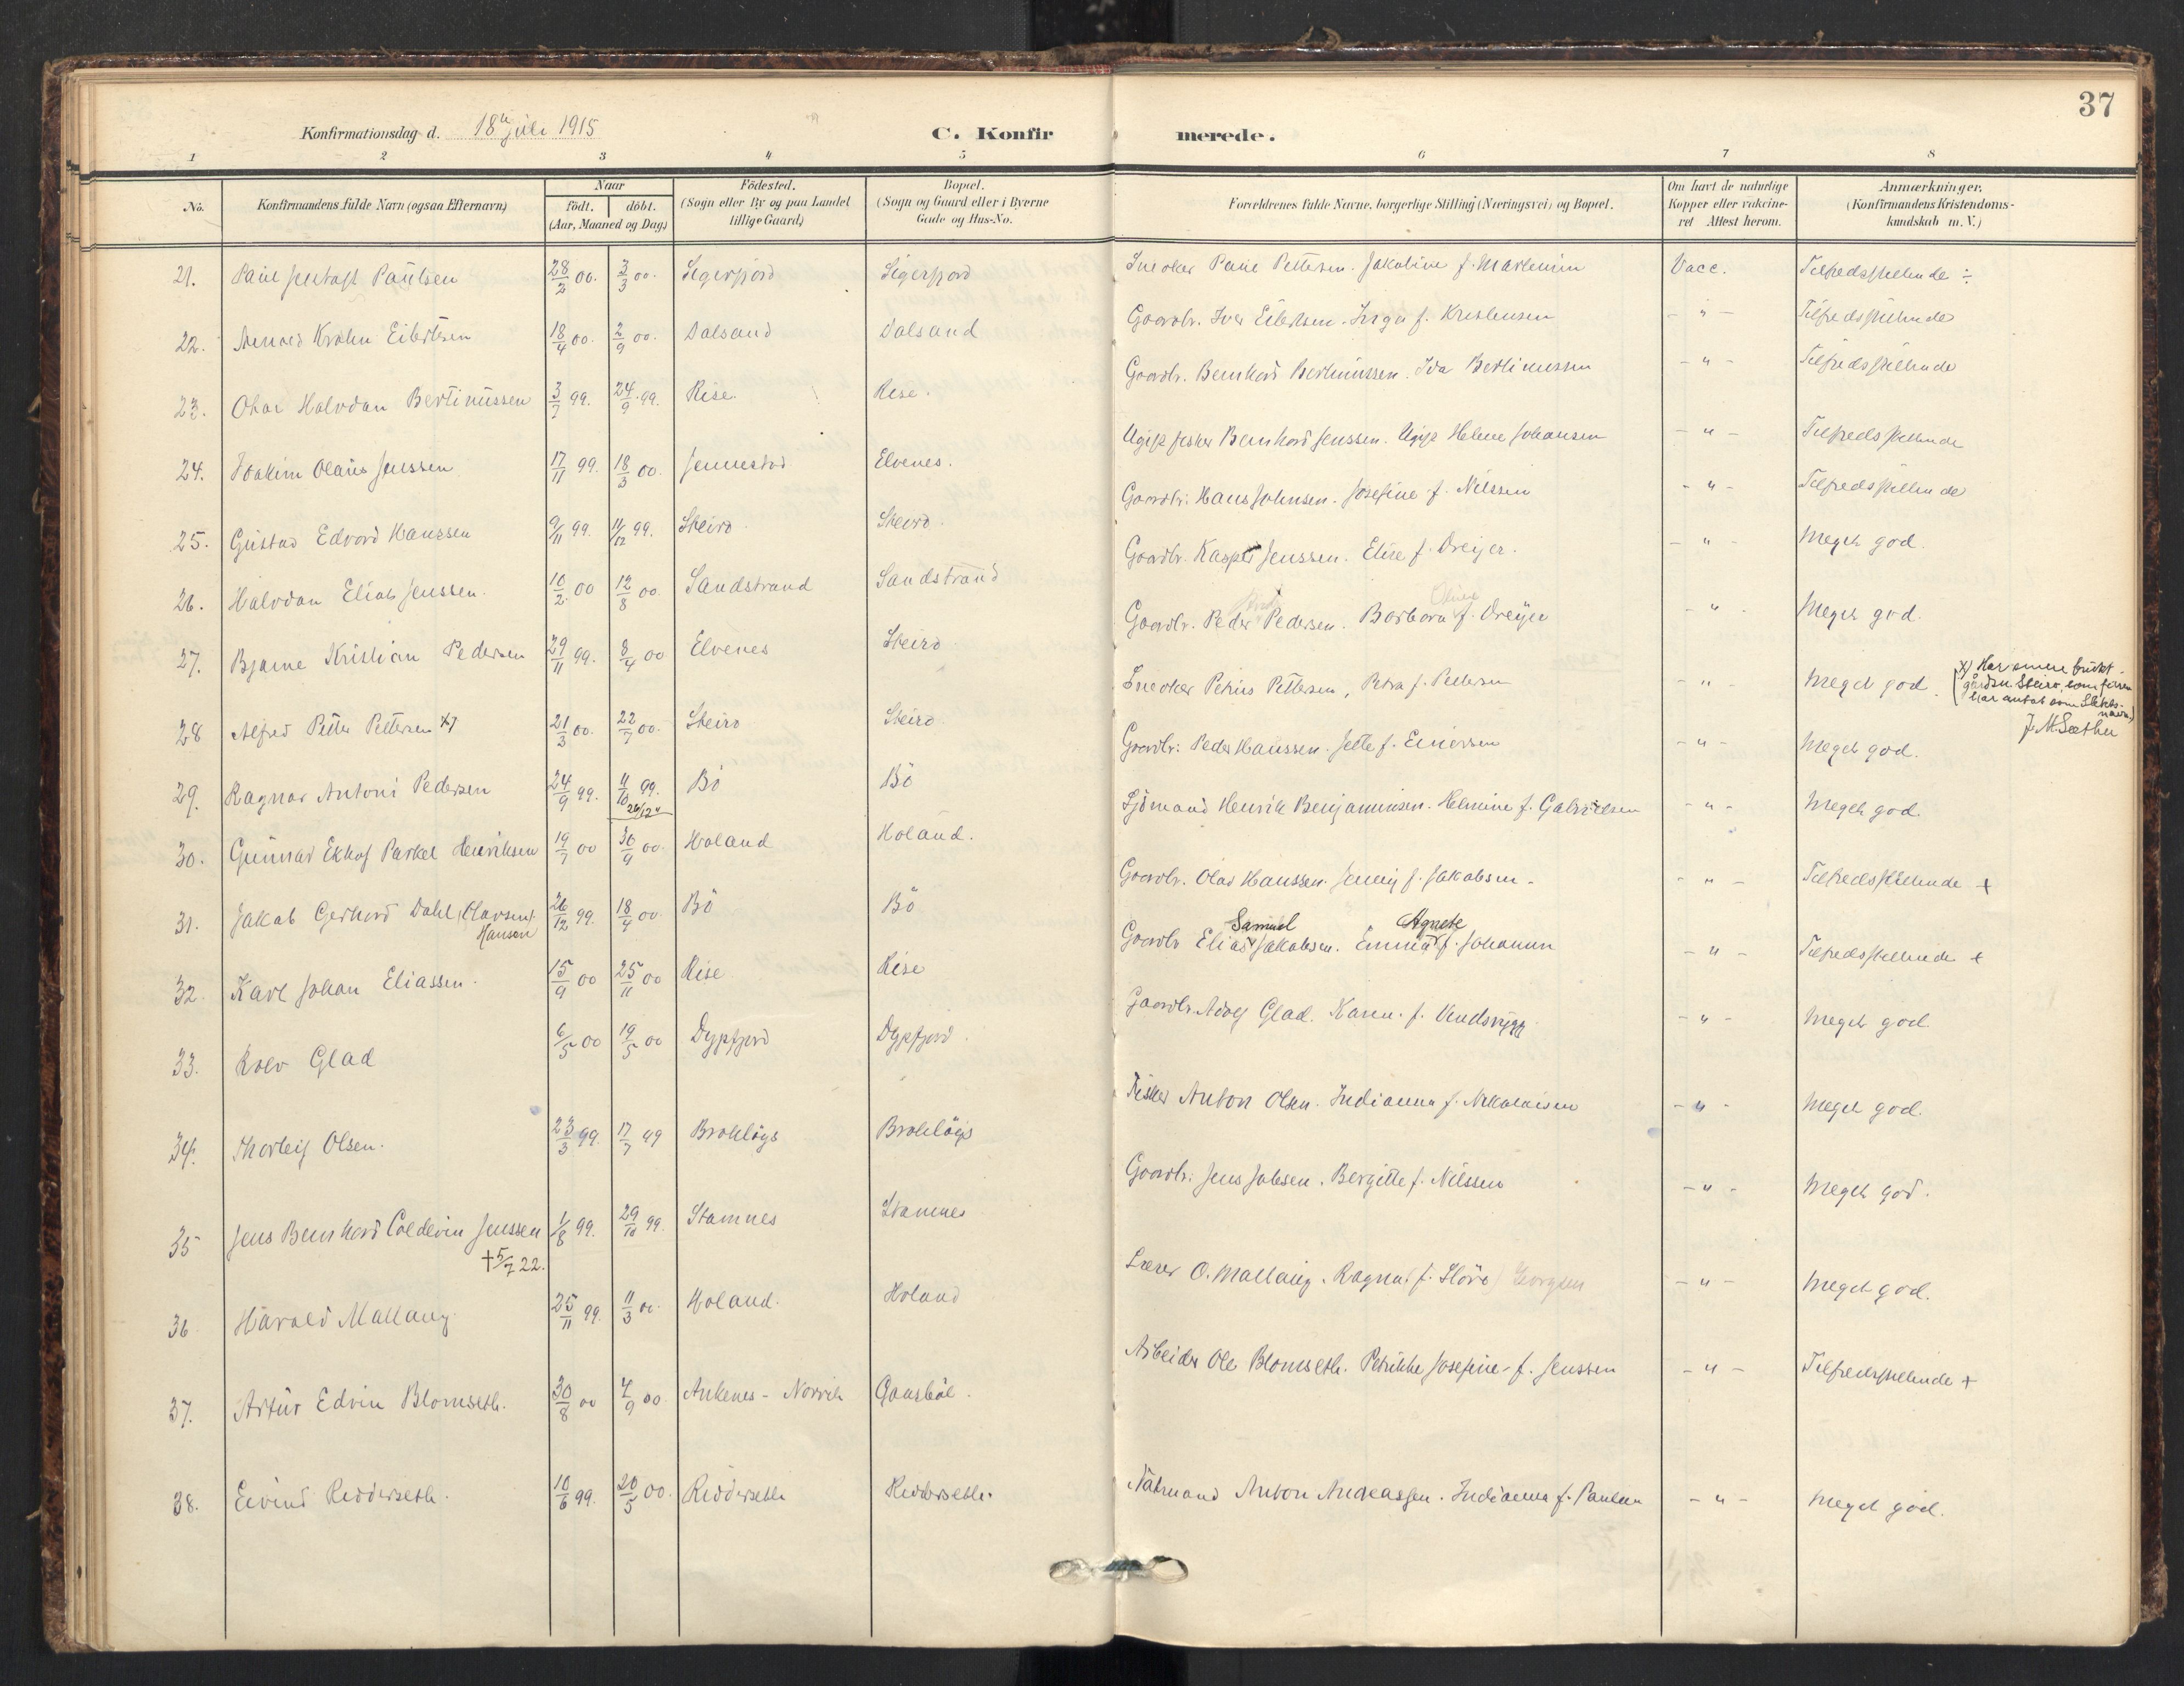 37
Konfirmationsdag d. 18de juli 1915
C. Konfirmerede.
1 2 3 4 5 6 7 8
No.
Konfirmandens fulde Navn (ogsaa Efternavn)
Naar
födt. döbt.
(Aar, Maaned og Dag)
Födested.
(Sogn eller By og paa Landet
tillige Gaard)
Bopæl.
(Sogn og Gaard eller i Byerne
Gade og Hus-No.
Forældrenes fulde Navne, borgerlige Stilling (Næringsvei) og Bopæl.
Om havt de naturlige
Kopper eller vakcine-
ret Attest herom.
Anmærkninger.
(Konfirmandens Kristendoms-
kundskab m. V.)
21. Paul Paulsen 28/2 00. 3/3 00. Sigerfjord Sigerfjord Snedker Paul Pettersen. Jakobine f. Vacc. Tilfredsstillende ÷
22. Krohn Eilertsen 18/4 00. 2/9 00. Dalsand Dalsand Gaardbr. Iver Eilertsen. Inga f. Kristensen - " - Tilfredsstillende
23. Halvdan Bertinussen 3/7 99. 24/9 99. Rise. Rise. Gaardbr. Bernhard Bertinussen. Ida Bertinussen - " - Tilfredsstillende
24. Joakim Olaus Jenssen 17/11 99. 18/3 00. Jennestad Elvenes. Ugift fisker Bernhard Jenssen. Ugift Helene Johansen - " - Tilfredsstillende
25. Gustav Edvard Hanssen 9/11 99. 11/12 99. Steiro Steiro. Gaardbr. Hans Johnsen. Josefine f. Nilssen - " - Tilfredsstillende
26. Halvdan Elias Jenssen. 10/2 00 12/8 00. Sandstrand Sandstrand Gaardbr. Kasper Jenssen. Elise f. Dreyer. - " - Meget god.
27. Bjarne Kristian Pedersen 29/11 99. 8/4 00 Elvenes Steiro Gaardbr. Peder Pedersen. Barbara f. Dreyer - " - Meget god.
28 Alfred Petter Pettersen x) 21/3 00. 22/7 00. Steiro Steiro Snedker Petrus Pettersen, Petra f. Pettersen - " - Meget god.
x) Har senere brukt
gårdsn. Steiro, som faren
har antat som Slekts-
navn)
J. M. Sæther
29. Ragnar Antoni Pedersen 24/9 99. 11/10 99. 26/12 " Bö Bö Gaardbr. Peder Hanssen. Jette f. Einersen - " - Meget god.
30. Gunnar Ekhof Parkel Henriksen 19/7 00 30/9 00. Holand Holand. Sjömand Henrik Benjaminsen. Helmine f. Gabrielsen - " - Meget god.
31. Jakob Gerhard Dahl (Olavsen)
Hansen 26/12 99. 18/4 00. Bö Bö Gaardbr. Olav Hanssen. Jenny f. Jakobsen. - " - Tilfredsstillende +
32. Karl Johan Eliassen. 15/9 00 25/11 00 Rise Rise Gaardbr Elias Samuel Jakobsen. Emma Agnete f. - " - Tilfredsstillende +
33. Rolv Glad 6/5 00 19/5 00 Dypfjord Dypfjord. Gaardbr. Adolf Glad. Karen f. - " - Meget god
34. Thorleif Olsen. 23/3 99. 17/7 99 Brokløys Brokløys Fisker Anton Olsen. Indianna f. Nikolaisen - " - Meget god.
35 Jens Bernhard Coldevin Jenssen
† 5/7 22. 1/8 99. 29/10 99. Stamnes Stamnes Gaardbr: Jens Jobsen. Bergitte f. Nilssen - " - Meget god.
36 Harald Mallaug 25/11 99. 11/3 00. Holand. Holand Lærer O. Mallaug. Ragna (f. Georgsen - " - Meget god.
37. Artur Edvin Blomseth. 30/8 00 4/9 00. Ankenes - Narvik Gausböl. Arbeider Ole Blomseth. Petrikke Josefine f. Jenssen - " - Tilfredsstillende +
38. Eivind Reddersetli. 10/6 99. 20/5 00. Reddersetli Reddersetli. Anton Andreassen. Indianna f. Paulsen - " - Meget god.